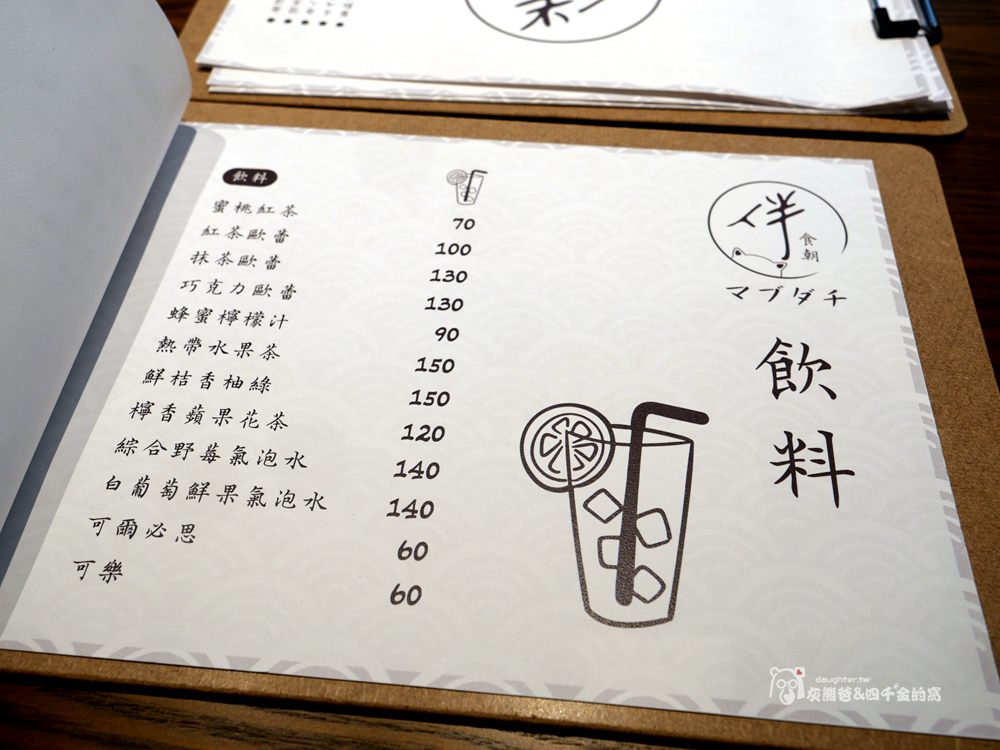 飲料
蜜桃紅茶 70
紅茶歐蕾 100
抹茶歐蕾 130
巧克力歐蕾 130
蜂蜜檸檬汁 90
熱帶水果茶 150
鮮桔香柚綠 150
檸香蘋果花茶 120
綜合野莓氣泡水 140
白葡萄鮮果氣泡水 140
可爾必思 60
可樂 60
伴
食朝
マブダチ
飲料
daughter.tw
灰熊爸&四千金的窩